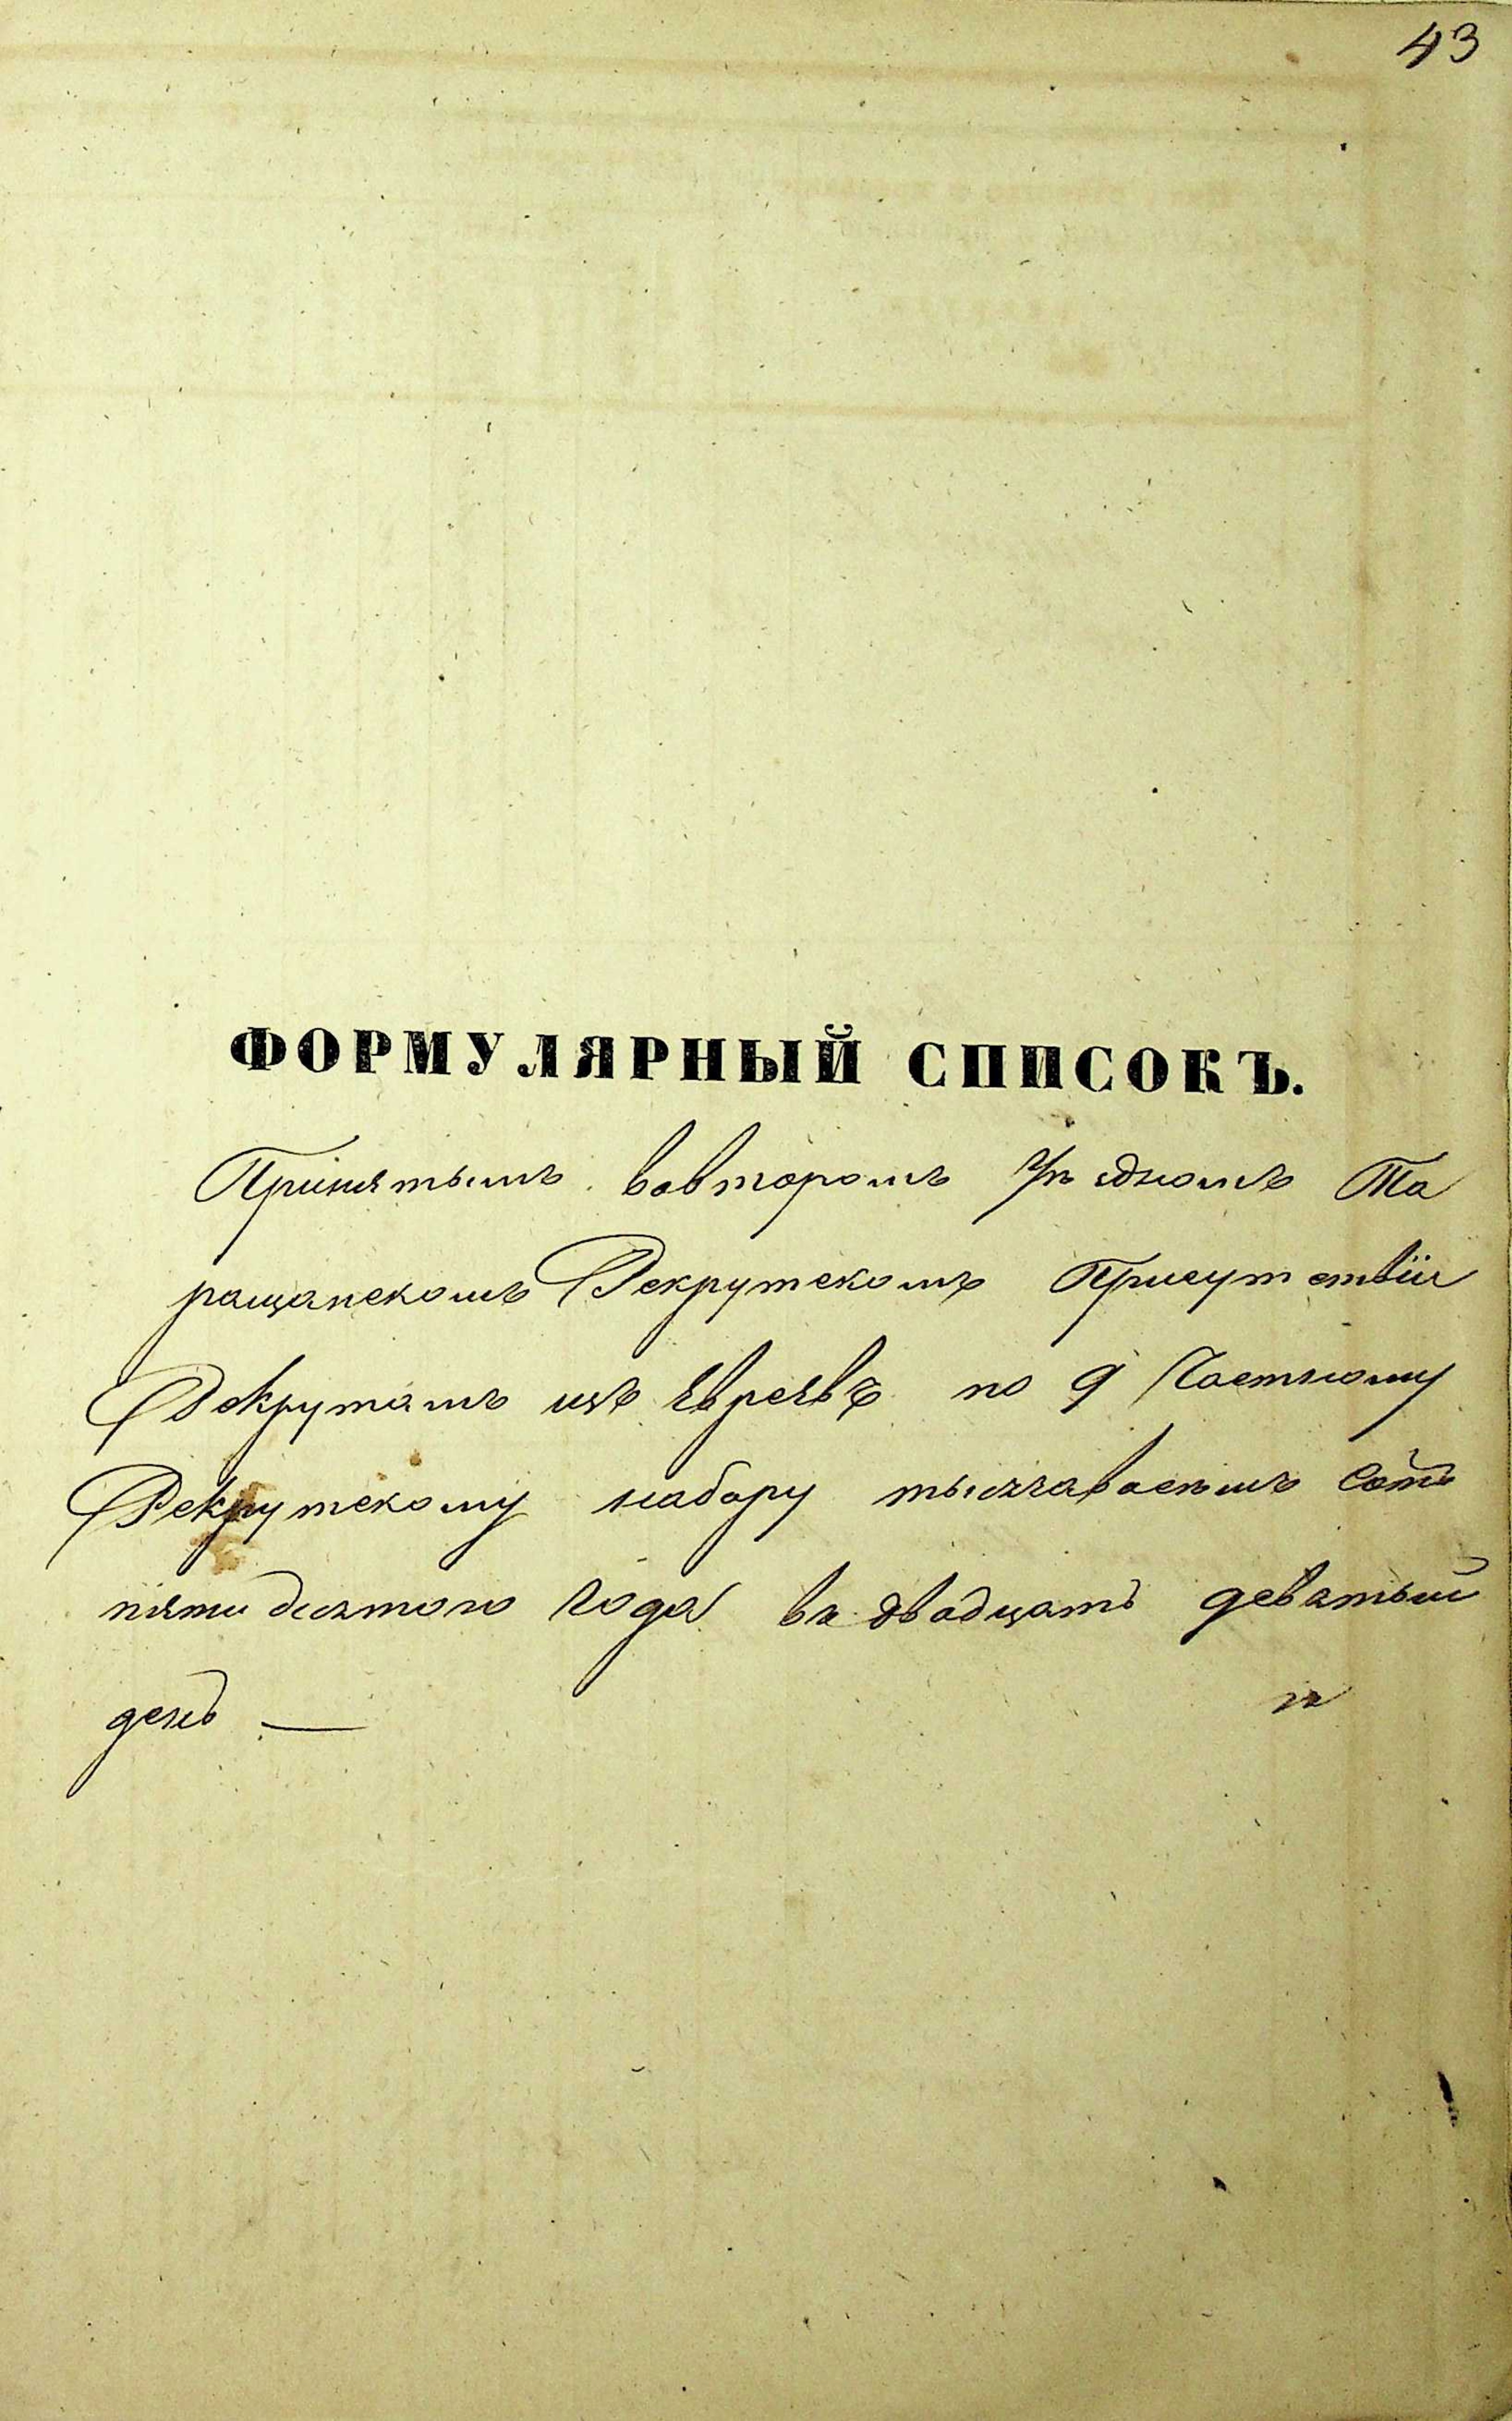 43
ФОРМУЛЯРНЫЙ СПИСОКЪ.
Принятымъ вовторомъ Уѣздномъ Та
ращанскомъ Рекрутскомъ Присутствіи
Рекрутамъ изъ Евреевъ по 9 Частному
Рекрутскому набору тысячавосемъ сотъ
пятидесятого Года въ двадцать девятый
день —